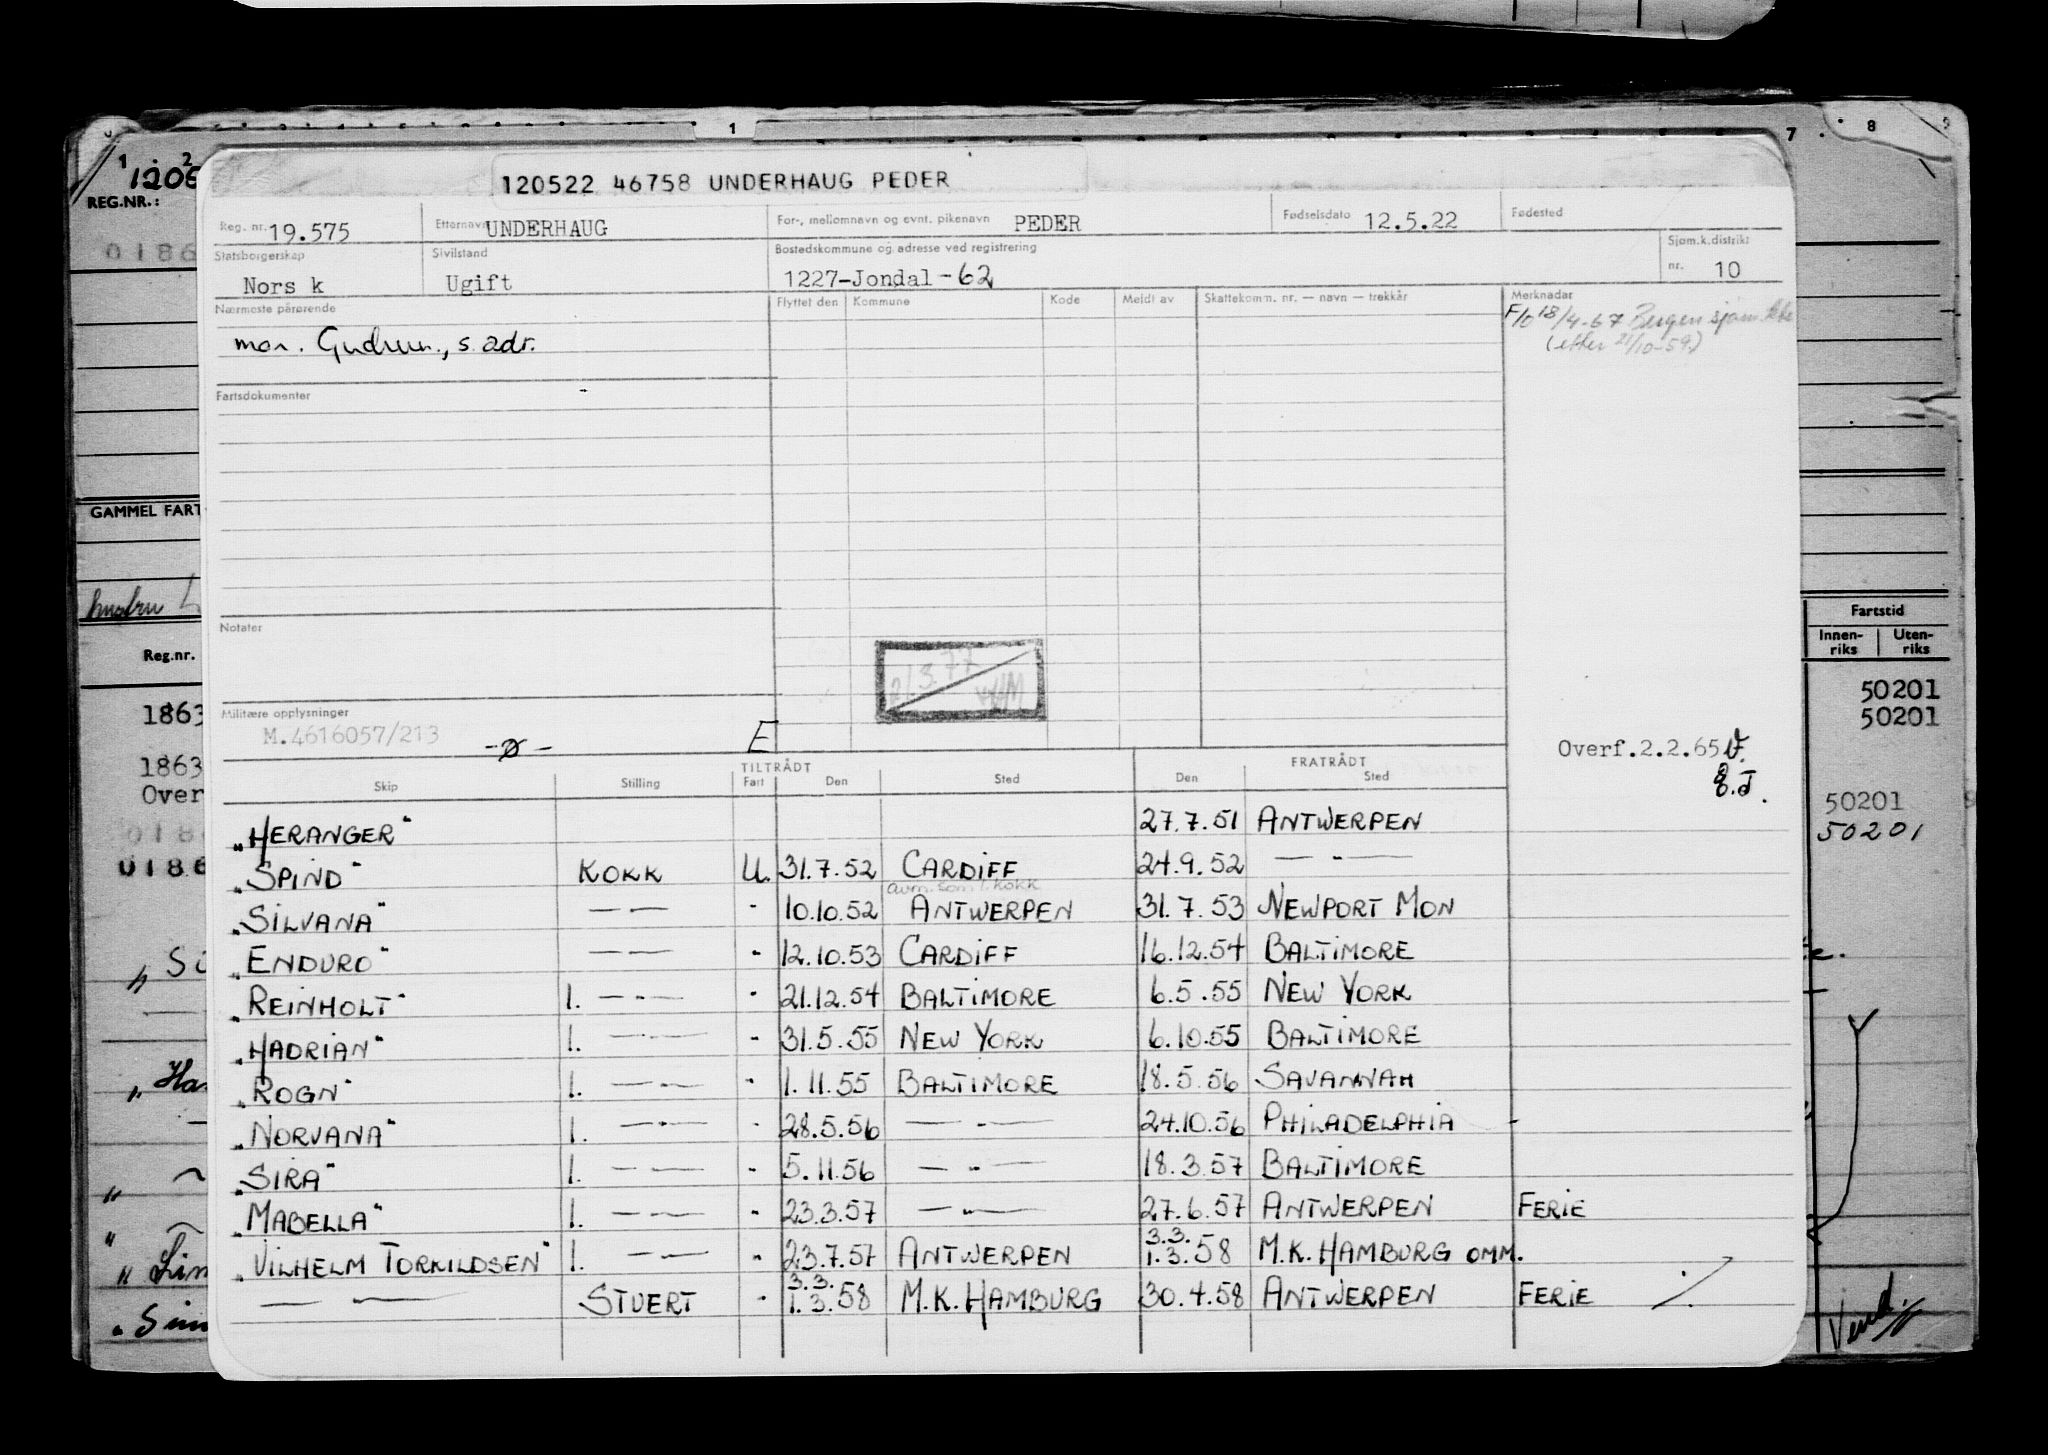 1 7 8 9
1 2
1205
REG.NR.:
0186
120522 46758 UNDERHAUG PEDER
Reg. nr. 19.575 Etternavn UNDERHAUG For-, mellomnavn og evnt. pikenavn PEDER Fødselsdato 12.5.22 Fødested
Statsborgerskap Sivilstand Bostedskommune og adresse ved registrering Sjøm.k.distrikt
Norsk Ugift 1227-Jondal-62 nr. 10
Nærmeste pårørende Flyttet den Kommune Kode Meldt av Skattekomm. nr. — navn — trekkår Merknader
mor. Gudrun., s. adr. F/o 18/4-67 Bergen sjøm.
(etter 21/10-59.)
Fartsdokumenter
GAMMEL FART
hustru
Notater
Fartstid
Reg.nr. Innen-riks Uten-riks
21.3.77
1863 50201
50201
Militære opplysninger
M.4616057/213 -ø- E Overf.2.2.65
1863
Over 50201
0186 50201
0186
TILTRÅDT FRATRÅDT
Skip Stilling Fart Den Sted Den Sted
"HERANGER" 27.7.51 ANTWERPEN
"SPIND" KOKK U. 31.7.52 CARDIFF 24.9.52 — " —
avm. som 1. kokk
"SILVANA" — — - 10.10.52 ANTWERPEN 31.7.53 NEWPORT MON
"ENDURO" — — - 12.10.53 CARDIFF 16.12.54 BALTIMORE
"REINHOLT" 1. — " — - 21.12.54 BALTIMORE 6.5.55 NEW YORK
"HADRIAN" 1. — " — - 31.5.55 NEW YORK 6.10.55 BALTIMORE
"ROGN" 1. — " — - 1.11.55 BALTIMORE 18.5.56 SAVANNAH
"NORVANA" 1. — " — - 28.5.56 — " — 24.10.56 PHILADELPHIA -
"SIRA" 1. — " — - 5.11.56 — " — 18.3.57 BALTIMORE
"MABELLA" 1. — " — - 23.3.57 — " — 27.6.57 ANTWERPEN FERIE
"VILHELM TORKILDSEN" 1. — " — - 23.7.57 ANTWERPEN 3.3. 1.3.58 M.K. HAMBURG OMM.
— " — STUERT - 3.3. 1.3.58 M.K. HAMBURG 30.4.58 ANTWERPEN FERIE ./.
Vend.